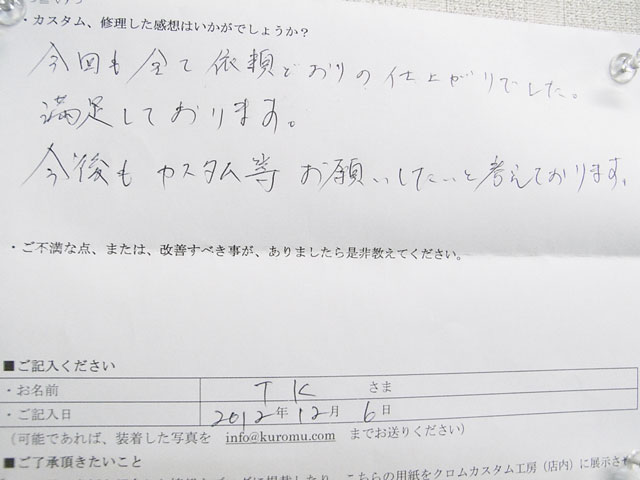 ・カスタム、修理した感想はいかがでしょうか?
今回も全て依頼どおりの仕上がりでした。
満足しております。
今後もカスタム等お願いしたいと考えております。
・ご不満な点、または、改善すべき事が、ありましたら是非教えてください。
■ご記入ください
・お名前 T K さま
・ご記入日 2012年 12月 6日
(可能であれば、装着した写真を info@kuromu.com までお送りください)
■ご了承頂きたいこと
こちらの用紙をクロムカスタム工房(店内)に展示さ